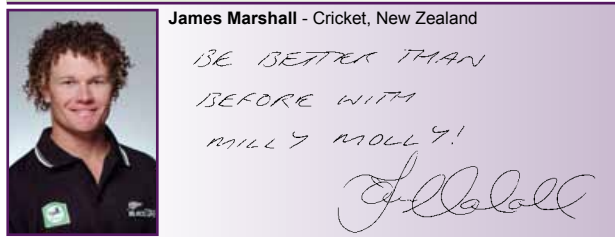 James Marshall - Cricket, New Zealand
BE BETTER THAN
BEFORE WITH
MILLY MOLLY!